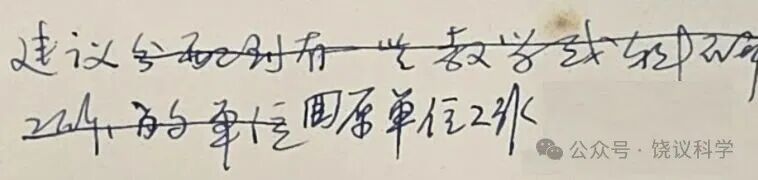 建议分配到有一些教学或科研
工作的单位回原单位工作
公众号·饶议科学